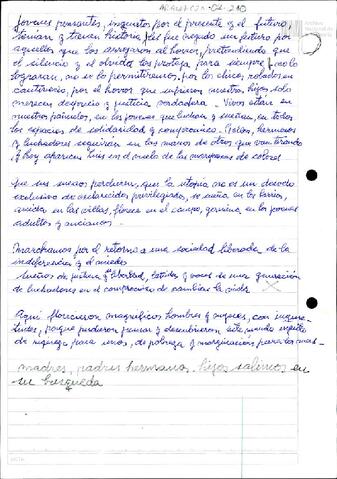 Jovenes pensantes, inquietos por el presente y el futuro,
tenian y traian historia, se fue negado un futuro por
aquellos que los arrojaron al horror, pretendiendo que
el silencio y el olvido los proteja para siempre, no lo
lograran, no se lo permitiremos, por los chicos robados en
cautiverio, por el horror que sufrieron nuestros hijos solo
merecen desprecio y justicia verdadera. Vivos estan en
nuestros pañuelos, en los jovenes que luchan y sueñan, en todos
los espacios de solidaridad y compromiso. Bellos, hermosos
y luchadores seguiran en las manos de otros que van tirando
y hoy aparecen en el vuelo de las mariposas de colores.
que sus sueños perduren, que la utopia no es un
exclusivo de esclarecidos privilegiados, se sueña en los barrios,
anida en las villas, florece en el campo, germina en los jovenes
adultos y ancianos.
Marchamos por el retorno a una sociedad liberada de la
indiferencia y el miedo
Sueños de justicia y libertad, latidos y voces de una generación
de luchadores en el compromiso de cambiar la vida.
Aqui florecieron magnificos hombres y mujeres, con inquie-
tudes, porque pudieron pensar y descubrieron este mundo repleto
de riqueza para unos, de pobreza y marginacion para los mas.
madres, padres hermanos, hijos salimos en
su búsqueda